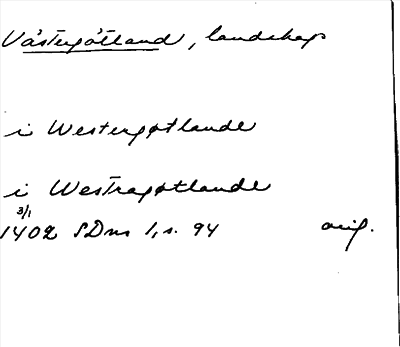 Västergötland, landskap
i Westergøtlande
i Westragøtlande
3/1
1402 SDns 1, s. 94 orig.